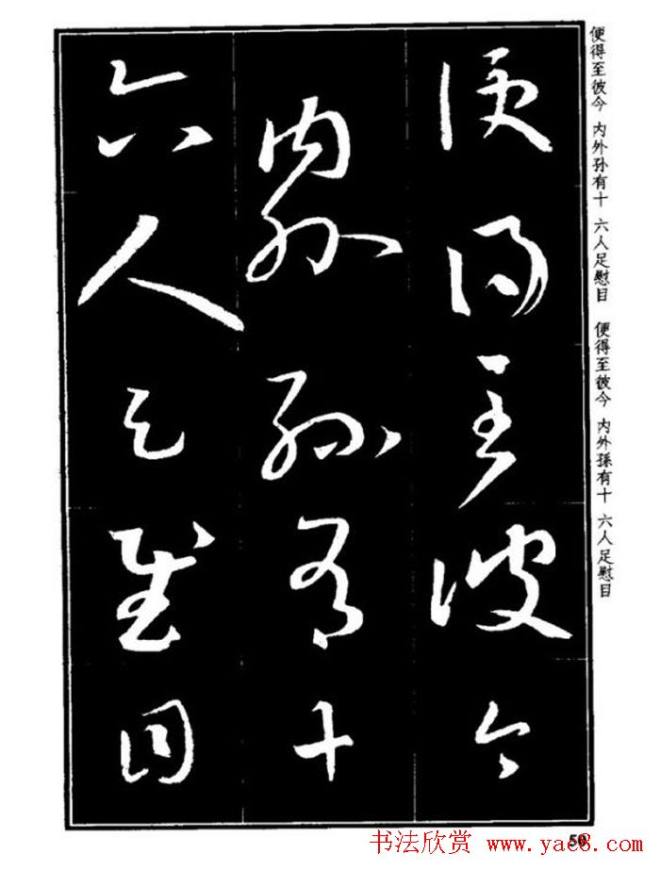 便得至彼今
内外孙有十
六人足慰目
便得至彼今 内外孙有十 六人足慰目 便得至彼今 内外孫有十 六人足慰目
50
书法欣赏 www.yac8.com